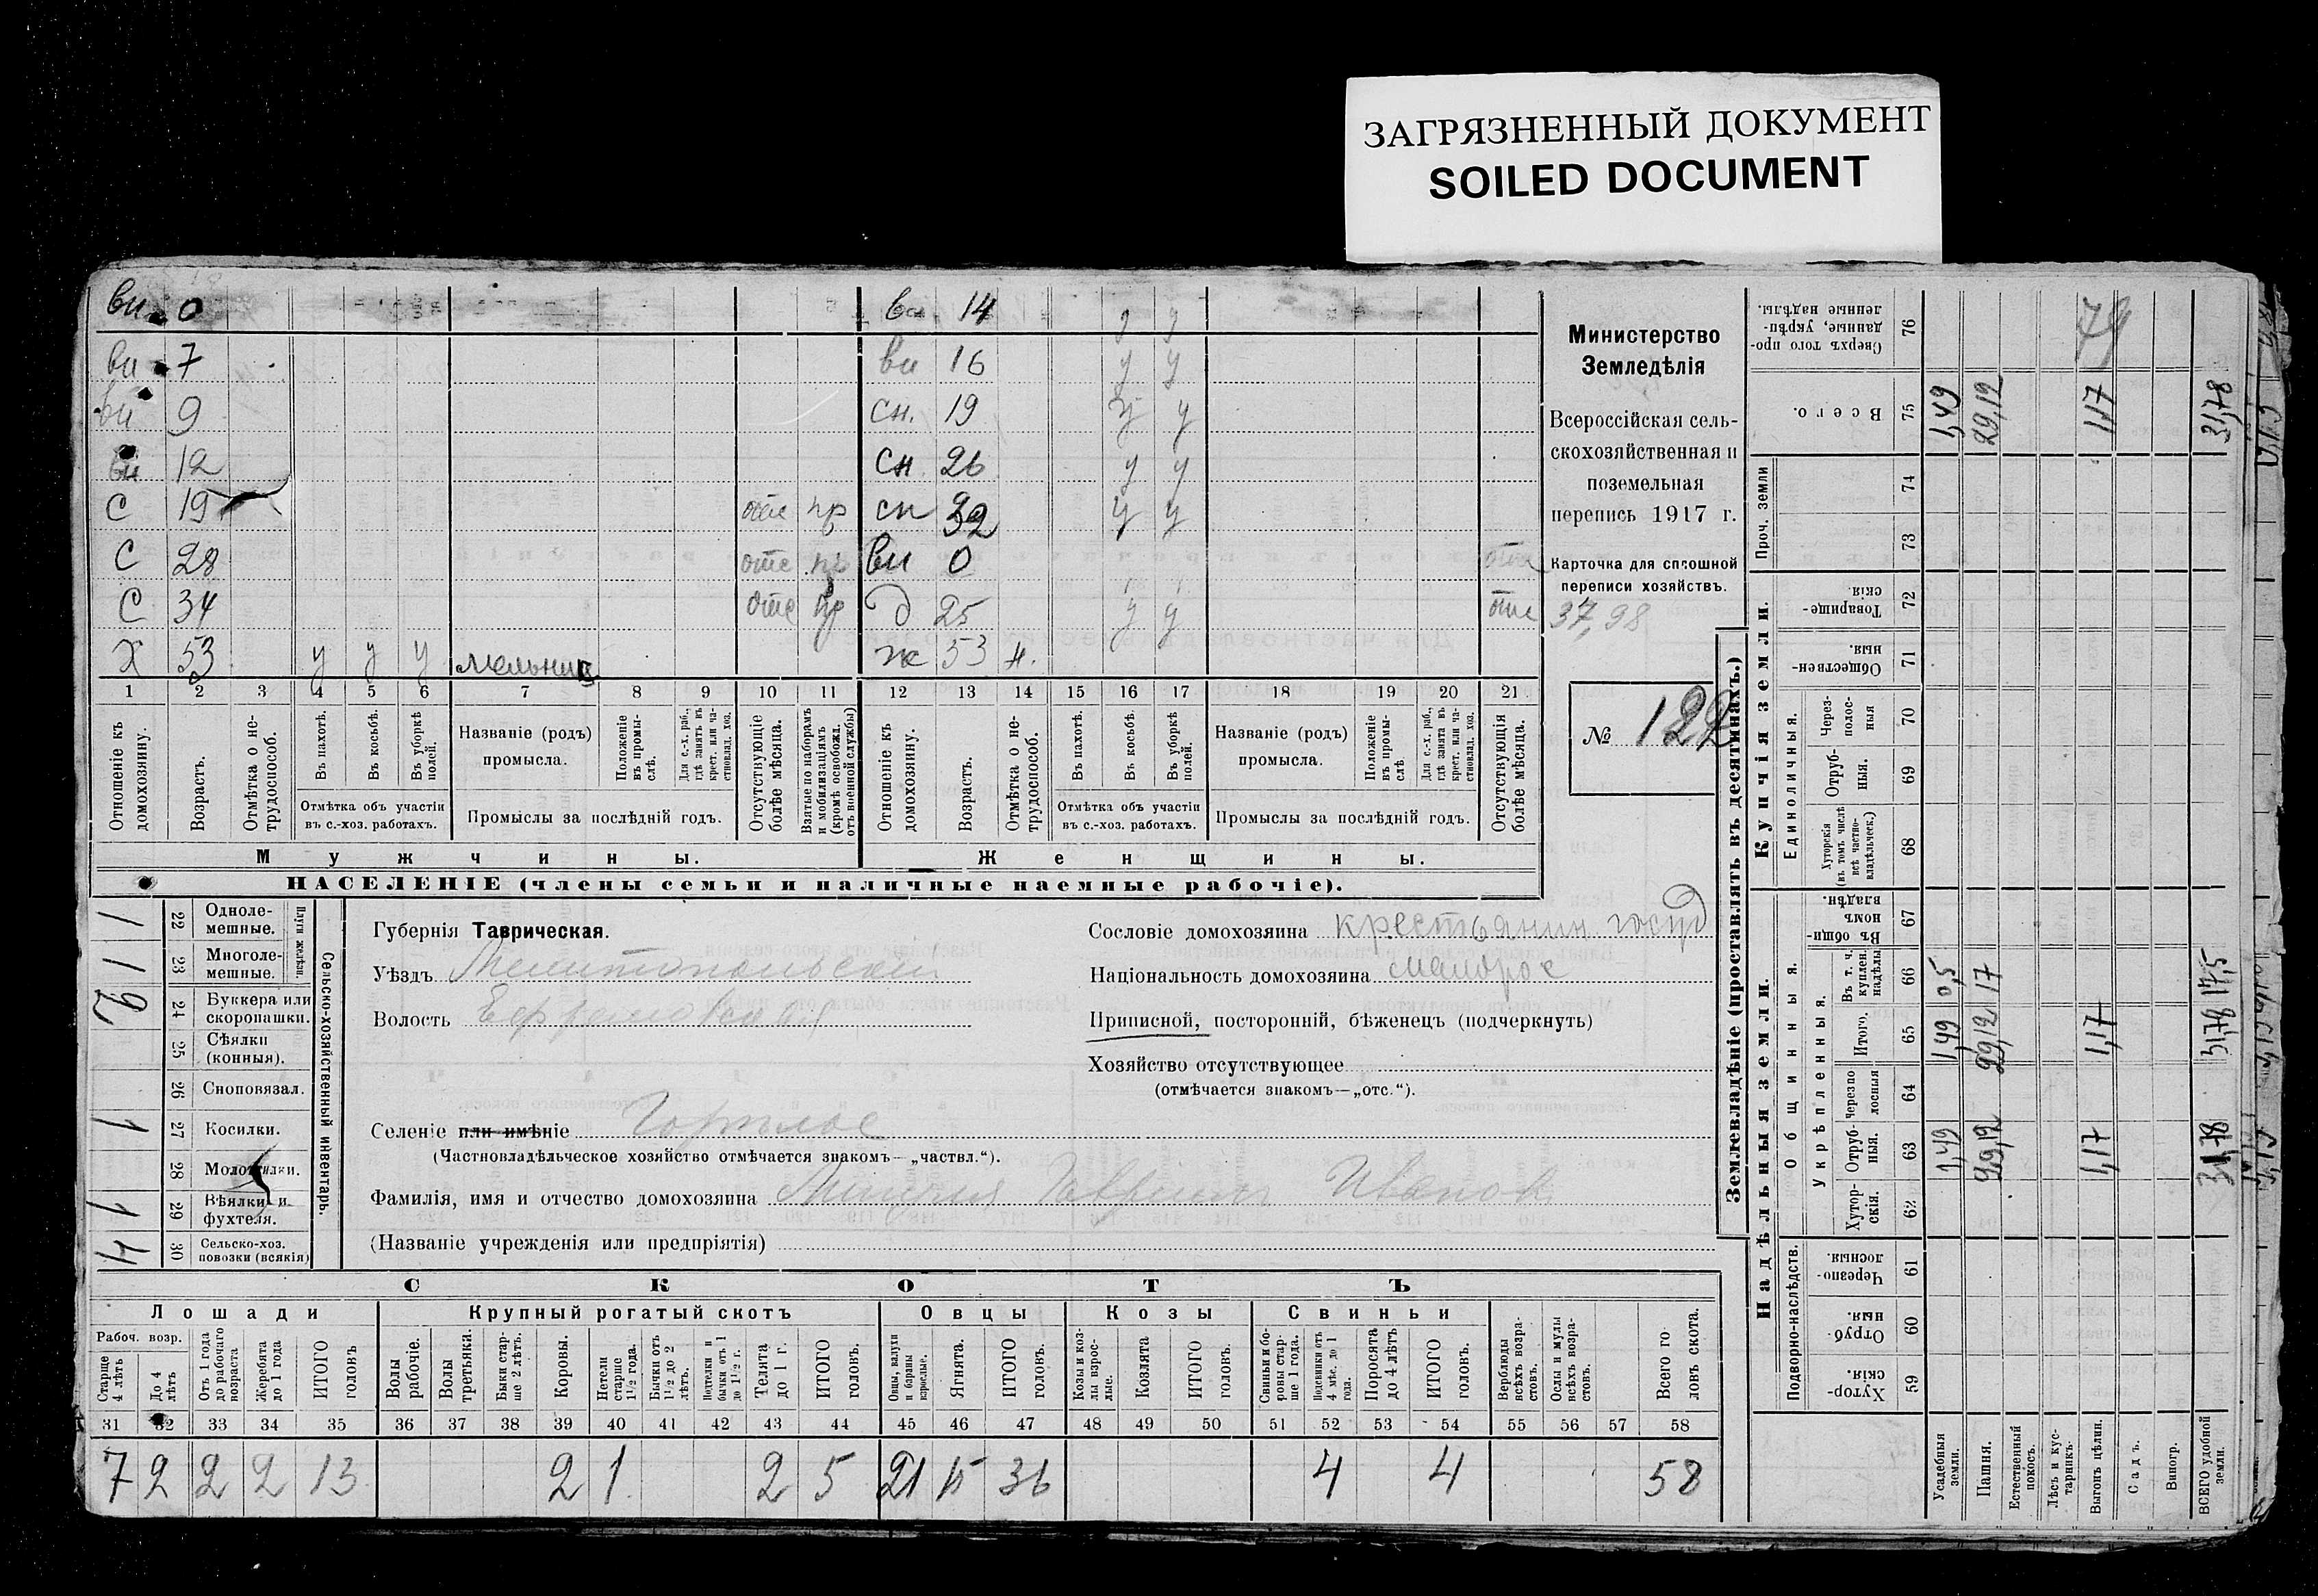 ЗАГРЯЗНЕННЫЙ ДОКУМЕНТ
SOILED DOCUMENT
вн 0 вн 14 у у
вн 7 вн 16 у у
вн 9 сн. 19 у у
вн 12 сн 26 у у
С 19 отс пр сн 32 у у
С 28 отс пр вн 0 отс
С 34 отс пр д 25 у у отс
Х 53 у у у мельник ж 53 н.
1 2 3 4 5 6 7 8 9 10 11 12 13 14 15 16 17 18 19 20 21
Отношеніе къ домохозяину.
Возрастъ.
Отмѣтка о не-трудоспособ.
Въ пахотѣ.
Въ косьбѣ.
Въ уборкѣ полей.
Отмѣтка объ участіи
въ с.-хоз. работахъ.
Названіе (родъ)
промысла.
Положеніе въ промы-слѣ.
Для с.-х. раб., гдѣ занятъ въ крест. или ча-стновлад. хоз.
Промыслы за послѣдній годъ.
Отсутствующіе болѣе мѣсяца.
Взятые по наборамъ и мобилизаціямъ (кромѣ освобожд. отъ военной службы)
Отношеніе къ домохозяину.
Возрастъ.
Отмѣтка о не-трудоспособ.
Въ пахотѣ.
Въ косьбѣ.
Въ уборкѣ полей.
Отмѣтка объ участіи
въ с.-хоз. работахъ.
Названіе (родъ)
промысла.
Положеніе въ промы-слѣ
Для с.-х. раб., гдѣ занята въ крест. или ча-стновлад. хоз.
Промыслы за послѣдній годъ.
Отсутствующія болѣе мѣсяца.
Мужчины.
Женщины.
НАСЕЛЕНІЕ (члены семьи и наличные наемные рабочіе).
Министерство
Земледѣлія
Всероссійская сель-
скохозяйственная и
поземельная
перепись 1917 г.
Карточка для сплошной
переписи хозяйствъ.
37,98
№ 122
1 22 Одноле-мешные.
1 23 Многоле-мешные.
Плуги желѣзн.
2 24 Буккера или скоропашки.
25 Сѣялки (конныя).
26 Сноповязал.
1 27 Косилки.
28 Молотилки.
1 29 Вѣялки и фухтеля.
4 30 Сельско-хоз. повозки (всякія)
Сельско-хозяйственный инвентарь.
Губернія Таврическая.
Уѣздъ Мелитопольскій
Волость Ефремовская
Селеніе или имѣніе
(Частновладѣльческое хозяйство отмѣчается знакомъ—„частвл.“).
Фамилія, имя и отчество домохозяина
(Названіе учрежденія или предпріятія)
Сословіе домохозяина крестьянин. госуд
Національность домохозяина малорос
Приписной, посторонній, бѣженецъ (подчеркнуть)
Хозяйство отсутствующее
(отмѣчается знакомъ—„отс.“).
СКОТЪ
Лошади Крупный рогатый скотъ Овцы Козы Свиньи
Рабоч. возр.
Старше 4 лѣтъ
До 4 лѣтъ
Отъ 1 года до рабочаго возраста
Жеребята до 1 года
ИТОГО головъ
Волы рабочіе.
Волы третьяка.
Быки стар-ше 2 лѣтъ.
Коровы.
Нетели старше 1½ года.
Бычки отъ 1½ до 2 лѣтъ.
Подтелки и бычки отъ 1 до 1½ г.
Телята до 1 г.
ИТОГО головъ.
Овцы, валухи и бараны взрослые.
Ягнята.
ИТОГО головъ.
Козы и коз-лы взрос-лые.
Козлята
ИТОГО головъ.
Свиньи и бо-ровы стар-ше 1 года.
Подсвинки отъ 4 мѣс. до 1 года.
Поросята до 4 лѣтъ
ИТОГО головъ.
Верблюды всѣхъ возра-стовъ.
Ослы и мулы всѣхъ возра-стовъ.
Всего го ловъ скота.
31 32 33 34 35 36 37 38 39 40 41 42 43 44 45 46 47 48 49 50 51 52 53 54 55 56 57 58
7 2 2 2 13 2 1 2 5 21 15 36 4 4 58
Землевладѣніе (проставлять въ десятинахъ.)
Купчія земли.
Надѣльныя земли.
Сверхъ того про-данные, укрѣп-ленные надѣлы. 76 79
Всего. 75 1,49 29,12 1,17 31,78
Проч. земли 74
73
Товарище-скія. 72
Обществен-ныя. 71
Единоличныя.
Через-полос-ныя 70
Отруб-ныя. 69
Хуторскія (въ томъ числѣ всѣ частно-владѣльческ.) 68
Общинныя.
Въ общи-номъ владѣн. 67
Укрѣпленныя.
Въ т. ч. куплен. надѣлы 66 0,5 17 17,5
Итого. 65 1,49 29,12 1,17 31,78
Черезпо лосныя 64
Отруб-ныя. 63 1,49 29,12 1,17 31,78
Хутор-скія. 62
Подворно-наслѣдств.
Черезпо-лосныя 61
Отруб-ныя 60
Хутор-скія. 59
Усадебныя земли.
Пашня.
Естественный покосъ.
Лѣсъ и кус-тарникъ.
Выгонъ цѣлин.
Садъ.
Виногр.
ВСЕГО удобной земли.